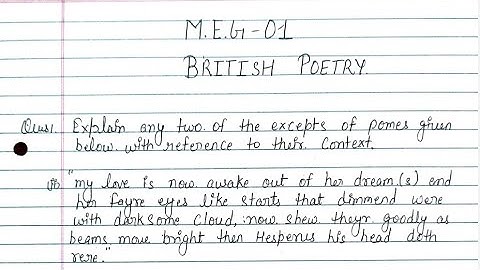 M.E.G-01
BRITISH POETRY.
Qus1. Explain any two of the excepts of pomes given
below with reference to their Context.
(i) "my love is now awake out of her dream(s) and
her fayre eyes like starts that dimmend were
with darksome cloud, now shew theyr goodly as
beams move bright then Hesperus his head doth
rere."